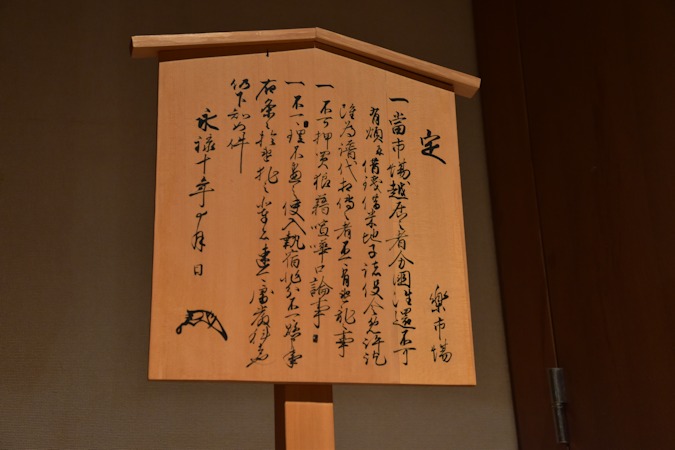 定
楽市場
一當市場越居之者分國往還不可
有煩并借銭借米地子諸役令免許訖
雖為譜代相傳之者不可有違乱事
一不可押買狼藉喧嘩口論事
一不可理不盡之使入執宿非分不可懸申事
右条々於違犯之輩者速可處嚴科者也
仍下知如件
永禄十年十月日